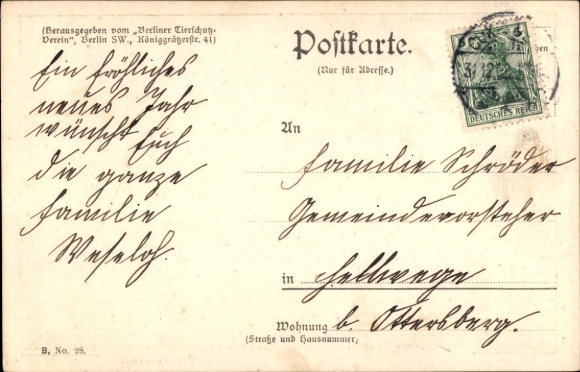 (Herausgegeben vom „Berliner Tierschutz-
Verein“, Berlin SW., Königgrätzerstr. 41)
Ein fröhliches
neues Jahr
wünscht Euch
die ganze
Familie
Weseloh.
B. No. 28.
Postkarte.
(Nur für Adresse.)
DEUTSCHES REICH
An
Familie Schröder
Gemeindevorsteher
in Hellwege
Wohnung b. Ottersberg.
(Straße und Hausnummer)